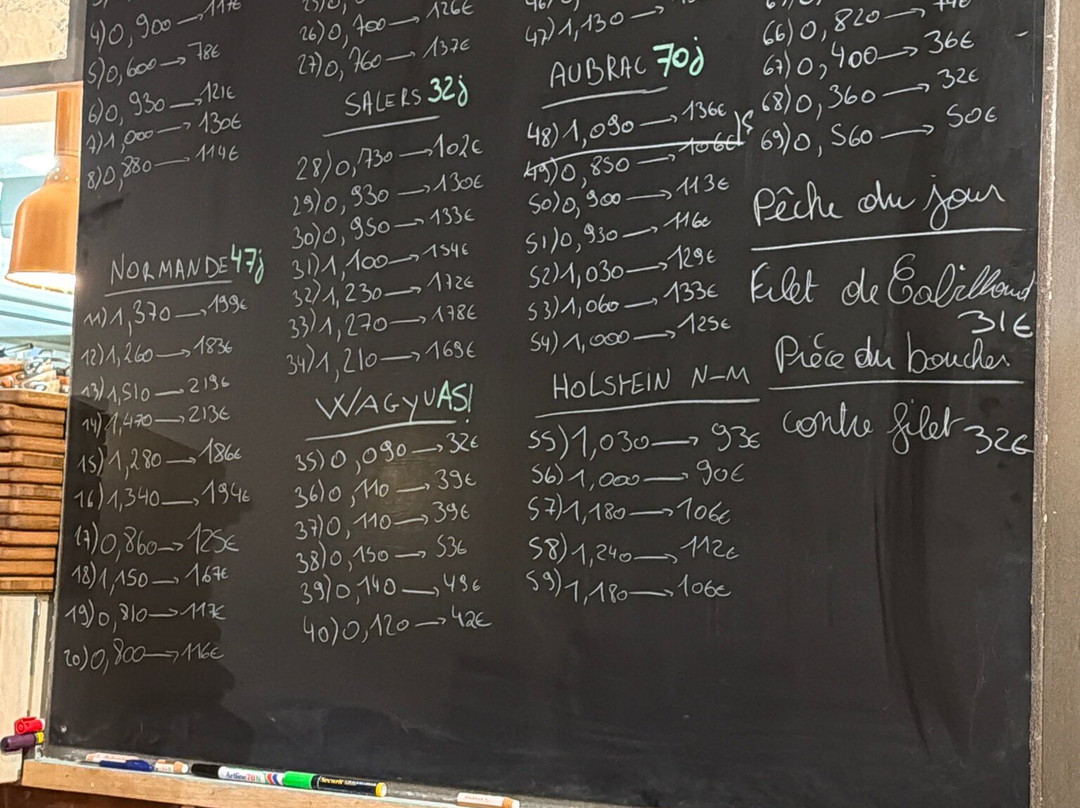 4) 0,900 → 117€
5) 0,600 → 78€
6) 0,930 → 121€
7) 1,000 → 130€
8) 0,880 → 114€
NORMANDE 47j
11) 1,370 → 199€
12) 1,260 → 183€
13) 1,510 → 219€
14) 1,470 → 213€
15) 1,280 → 186€
16) 1,340 → 194€
17) 0,860 → 125€
18) 1,150 → 167€
19) 0,810 → 117€
20) 0,800 → 116€
26) 0,700 → 126€
27) 0,760 → 137€
SALERS 32j
28) 0,730 → 102€
29) 0,930 → 130€
30) 0,950 → 133€
31) 1,100 → 154€
32) 1,230 → 172€
33) 1,270 → 178€
34) 1,210 → 169€
WAGYU A5!
35) 0,090 → 32€
36) 0,110 → 39€
37) 0,110 → 39€
38) 0,150 → 53€
39) 0,140 → 49€
40) 0,120 → 42€
47) 1,130 →
AUBRAC 70j
48) 1,090 → 136€
49) 0,850 → 106€
50) 0,900 → 113€
51) 0,930 → 116€
52) 1,030 → 129€
53) 1,060 → 133€
54) 1,000 → 125€
HOLSTEIN N-M
55) 1,030 → 93€
56) 1,000 → 90€
57) 1,180 → 106€
58) 1,240 → 112€
59) 1,180 → 106€
66) 0,820 →
67) 0,400 → 36€
68) 0,360 → 32€
69) 0,560 → 50€
Pêche du jour
Filet de Cabillaud
31€
Pièce du boucher
contre filet 32€
Artline 70N